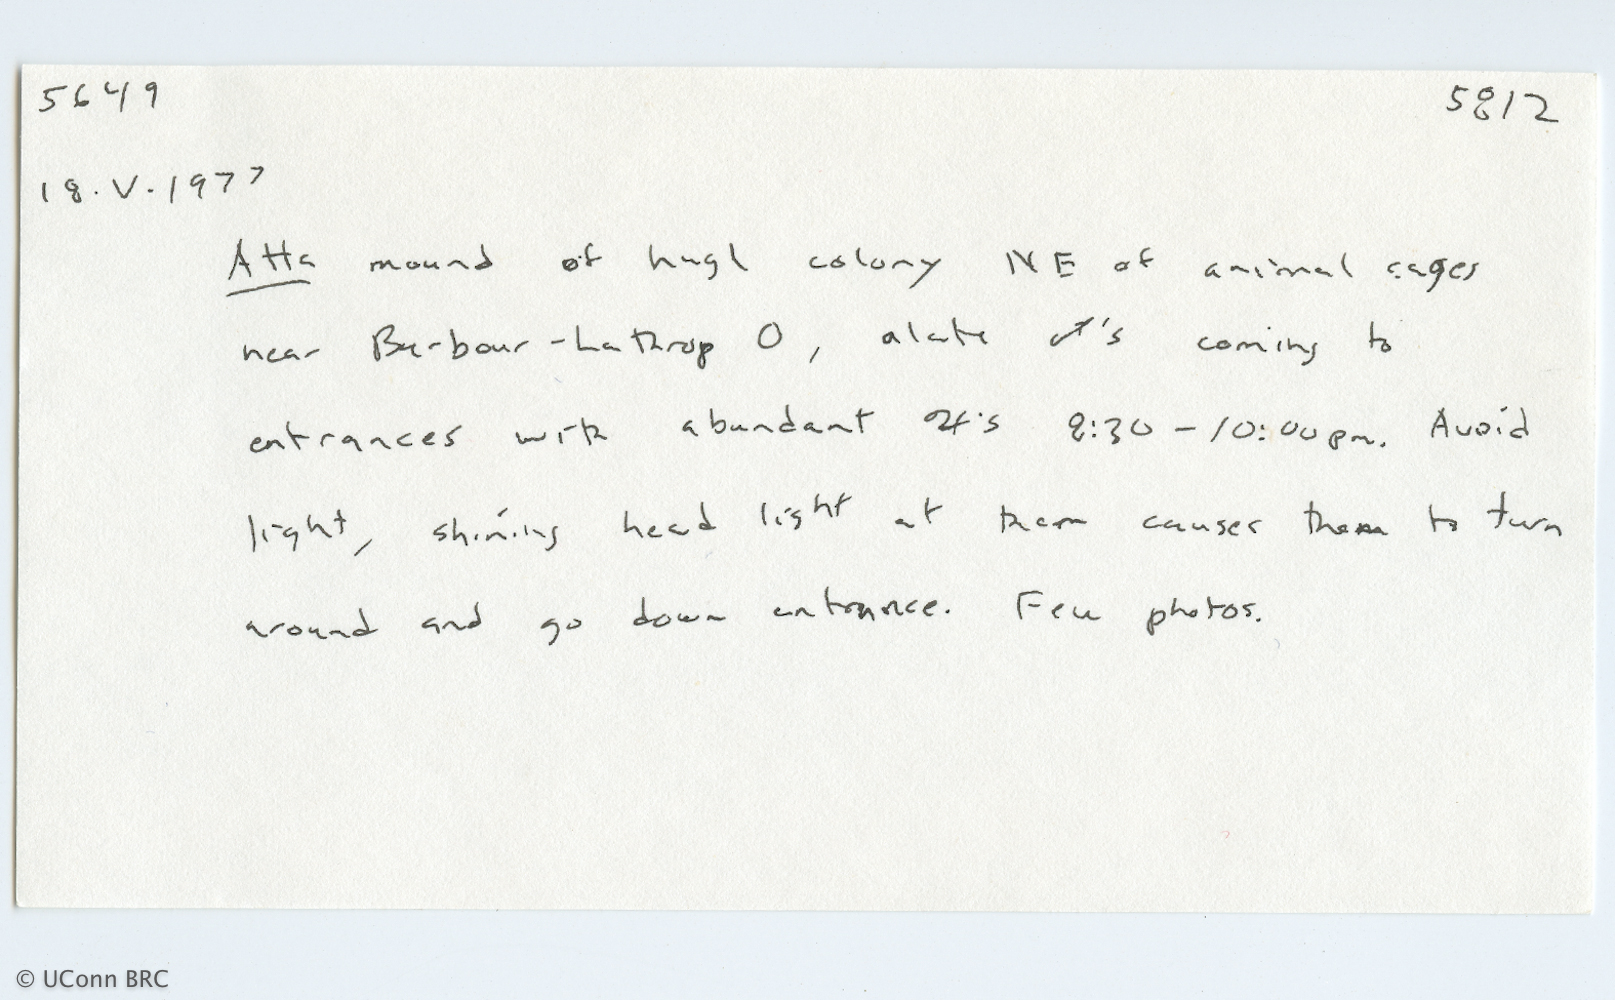 5649 5812
18.V.1977
Atta mound of hugl colony NE of animal cages
near Barbour-Lathrop 0, alate ♂'s coming to
entrances with abundant 8:30-10:00pm. Avoid
light, shining head light at them causes them to turn
around and go down entrance. Few photos.
© UConn BRC